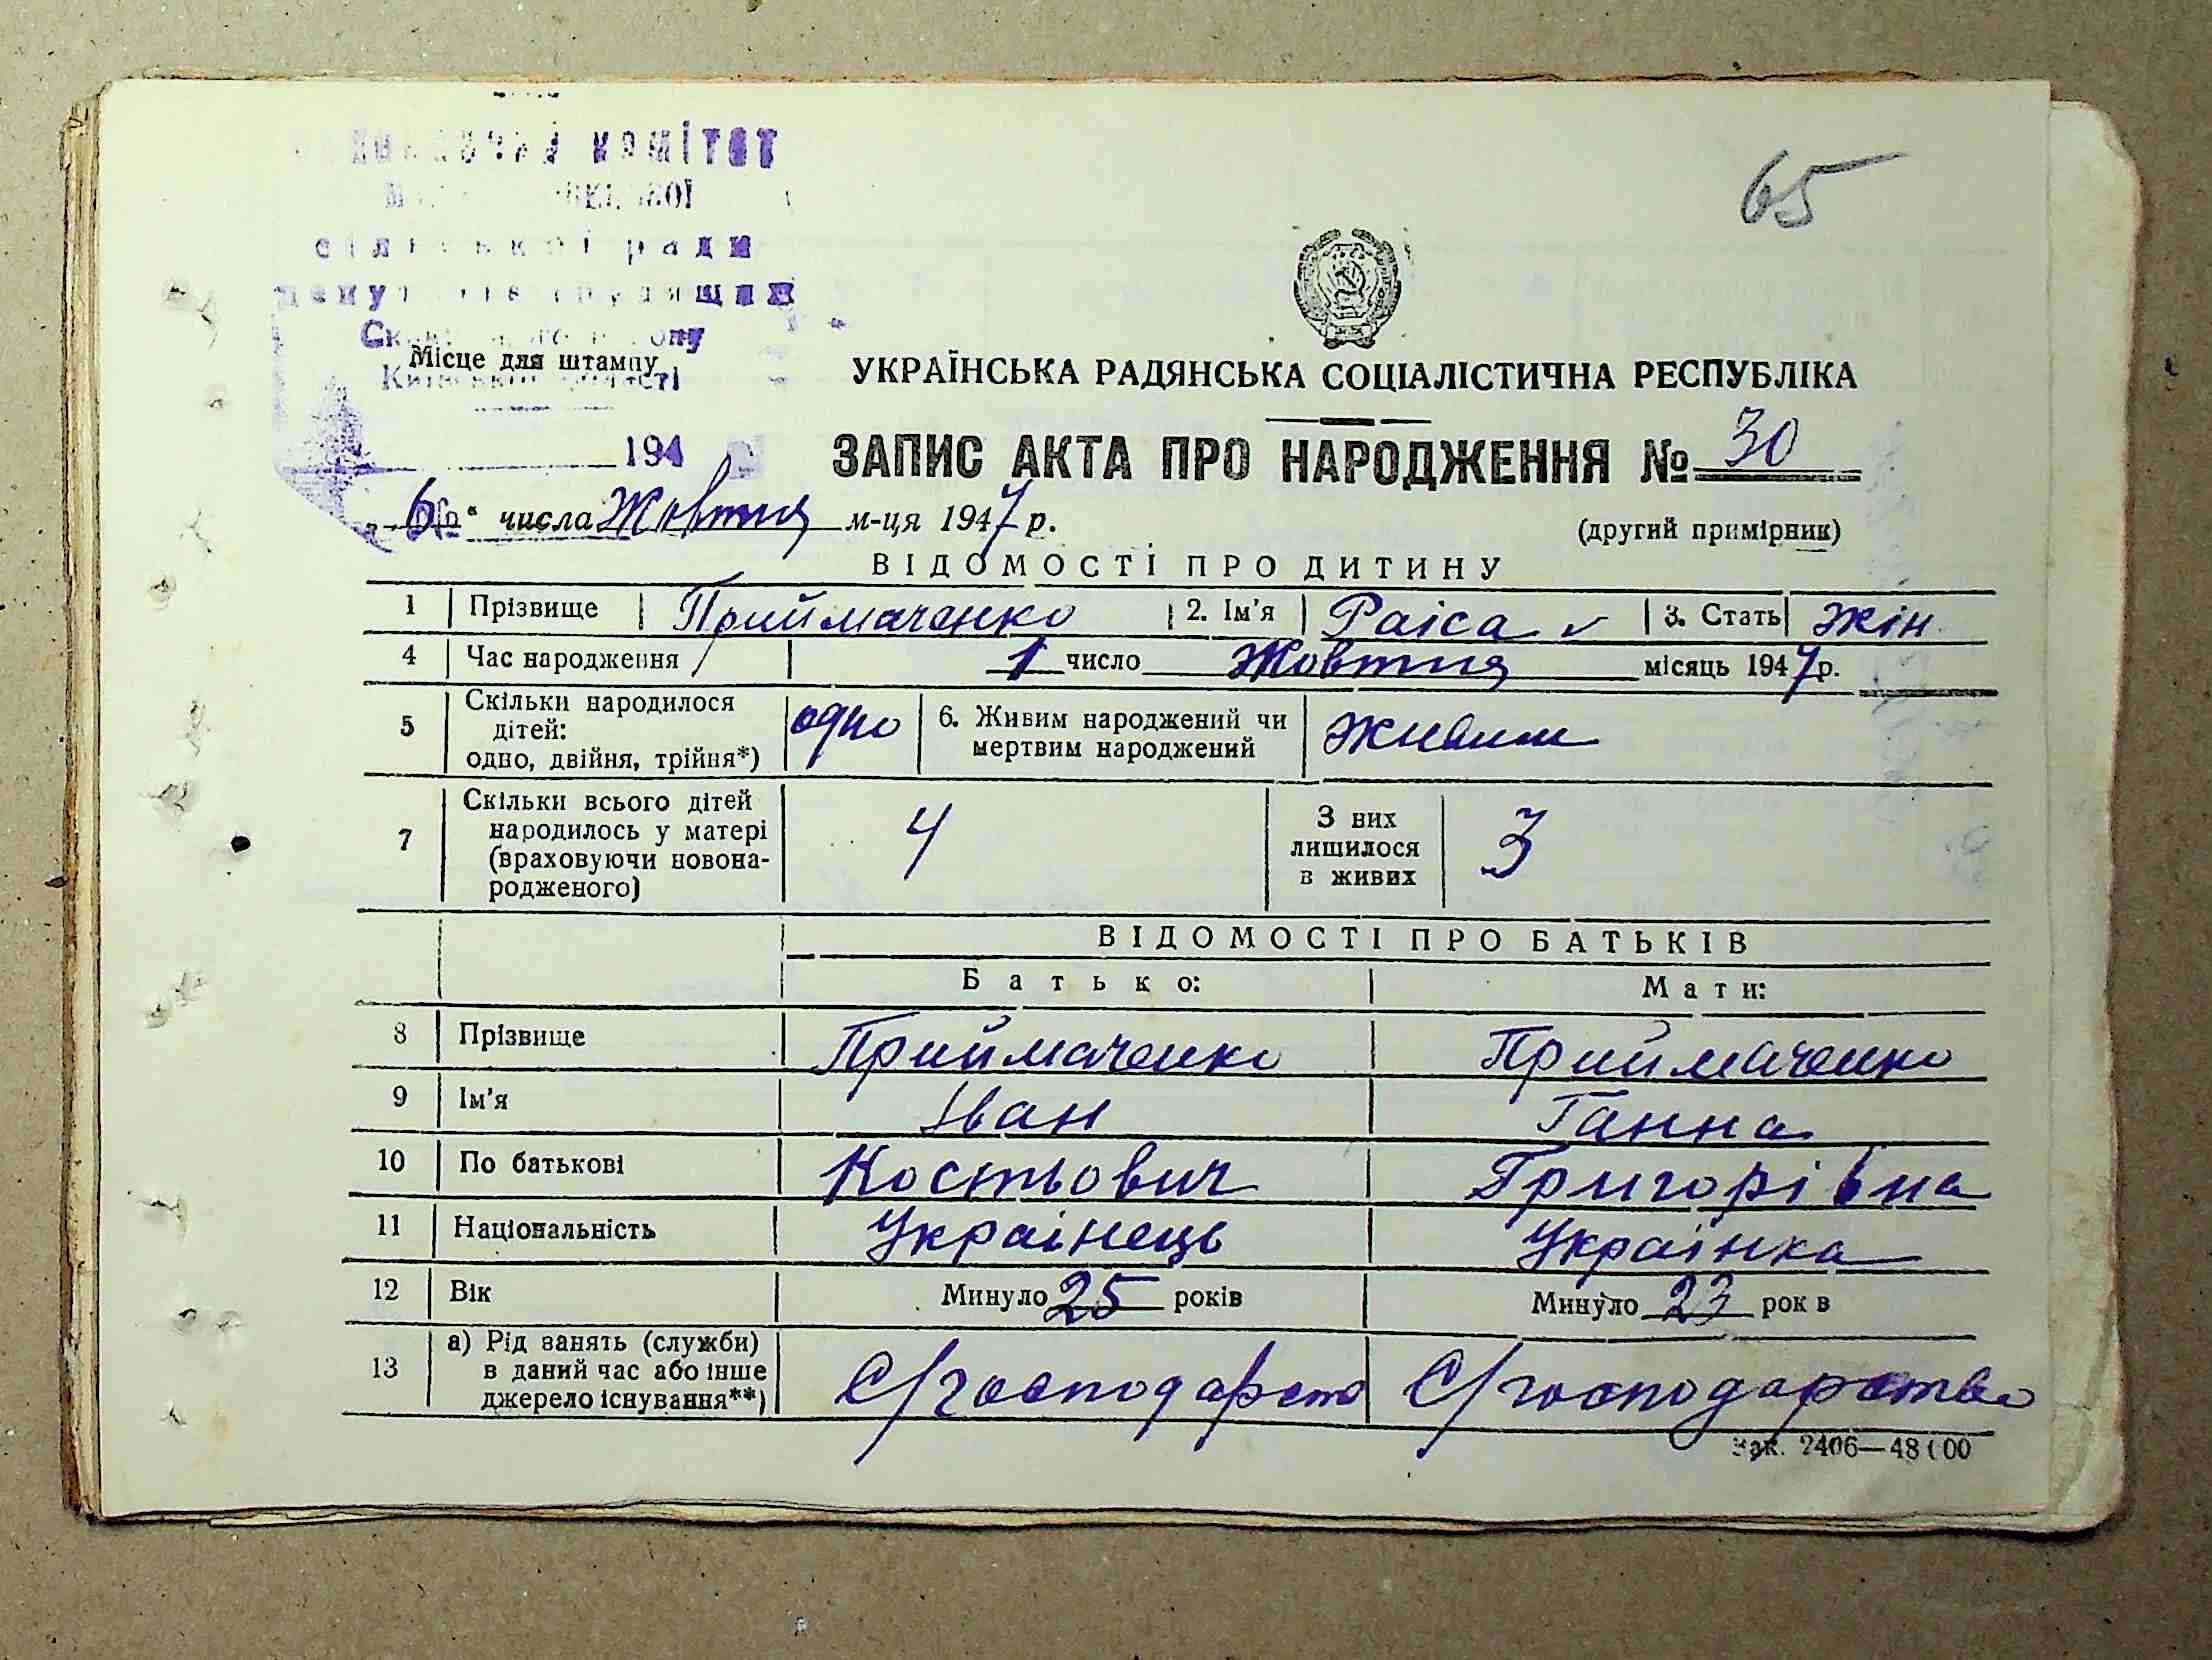 комітет
65
сільської ради
Місце для штампу
Київської області
УКРАЇНСЬКА РАДЯНСЬКА СОЦІАЛІСТИЧНА РЕСПУБЛІКА
194
ЗАПИС АКТА ПРО НАРОДЖЕННЯ № 30
„6“ числа Жовтня м-ця 1947 р.
(другий примірник)
ВІДОМОСТІ ПРО ДИТИНУ
1 Прізвище Приймаченко 2. Ім'я Раіса 3. Стать жін
4 Час народження 1 число Жовтня місяць 1947 р.
5 Скільки народилося дітей: одно, двійня, трійня*) одно 6. Живим народжений чи мертвим народжений живим
7 Скільки всього дітей народилось у матері (враховуючи новона-родженого) 4 З них лишилося в живих 3
ВІДОМОСТІ ПРО БАТЬКІВ
Батько: Мати:
8 Прізвище Приймаченко Приймаченко
9 Ім'я Іван Ганна
10 По батькові Костьович Григорівна
11 Національність Українець Українка
12 Вік Минуло 25 років Минуло 23 рок в
13 а) Рід занять (служби) в даний час або інше джерело існування**) С/господарств С/господарство
Зак. 2406—48000